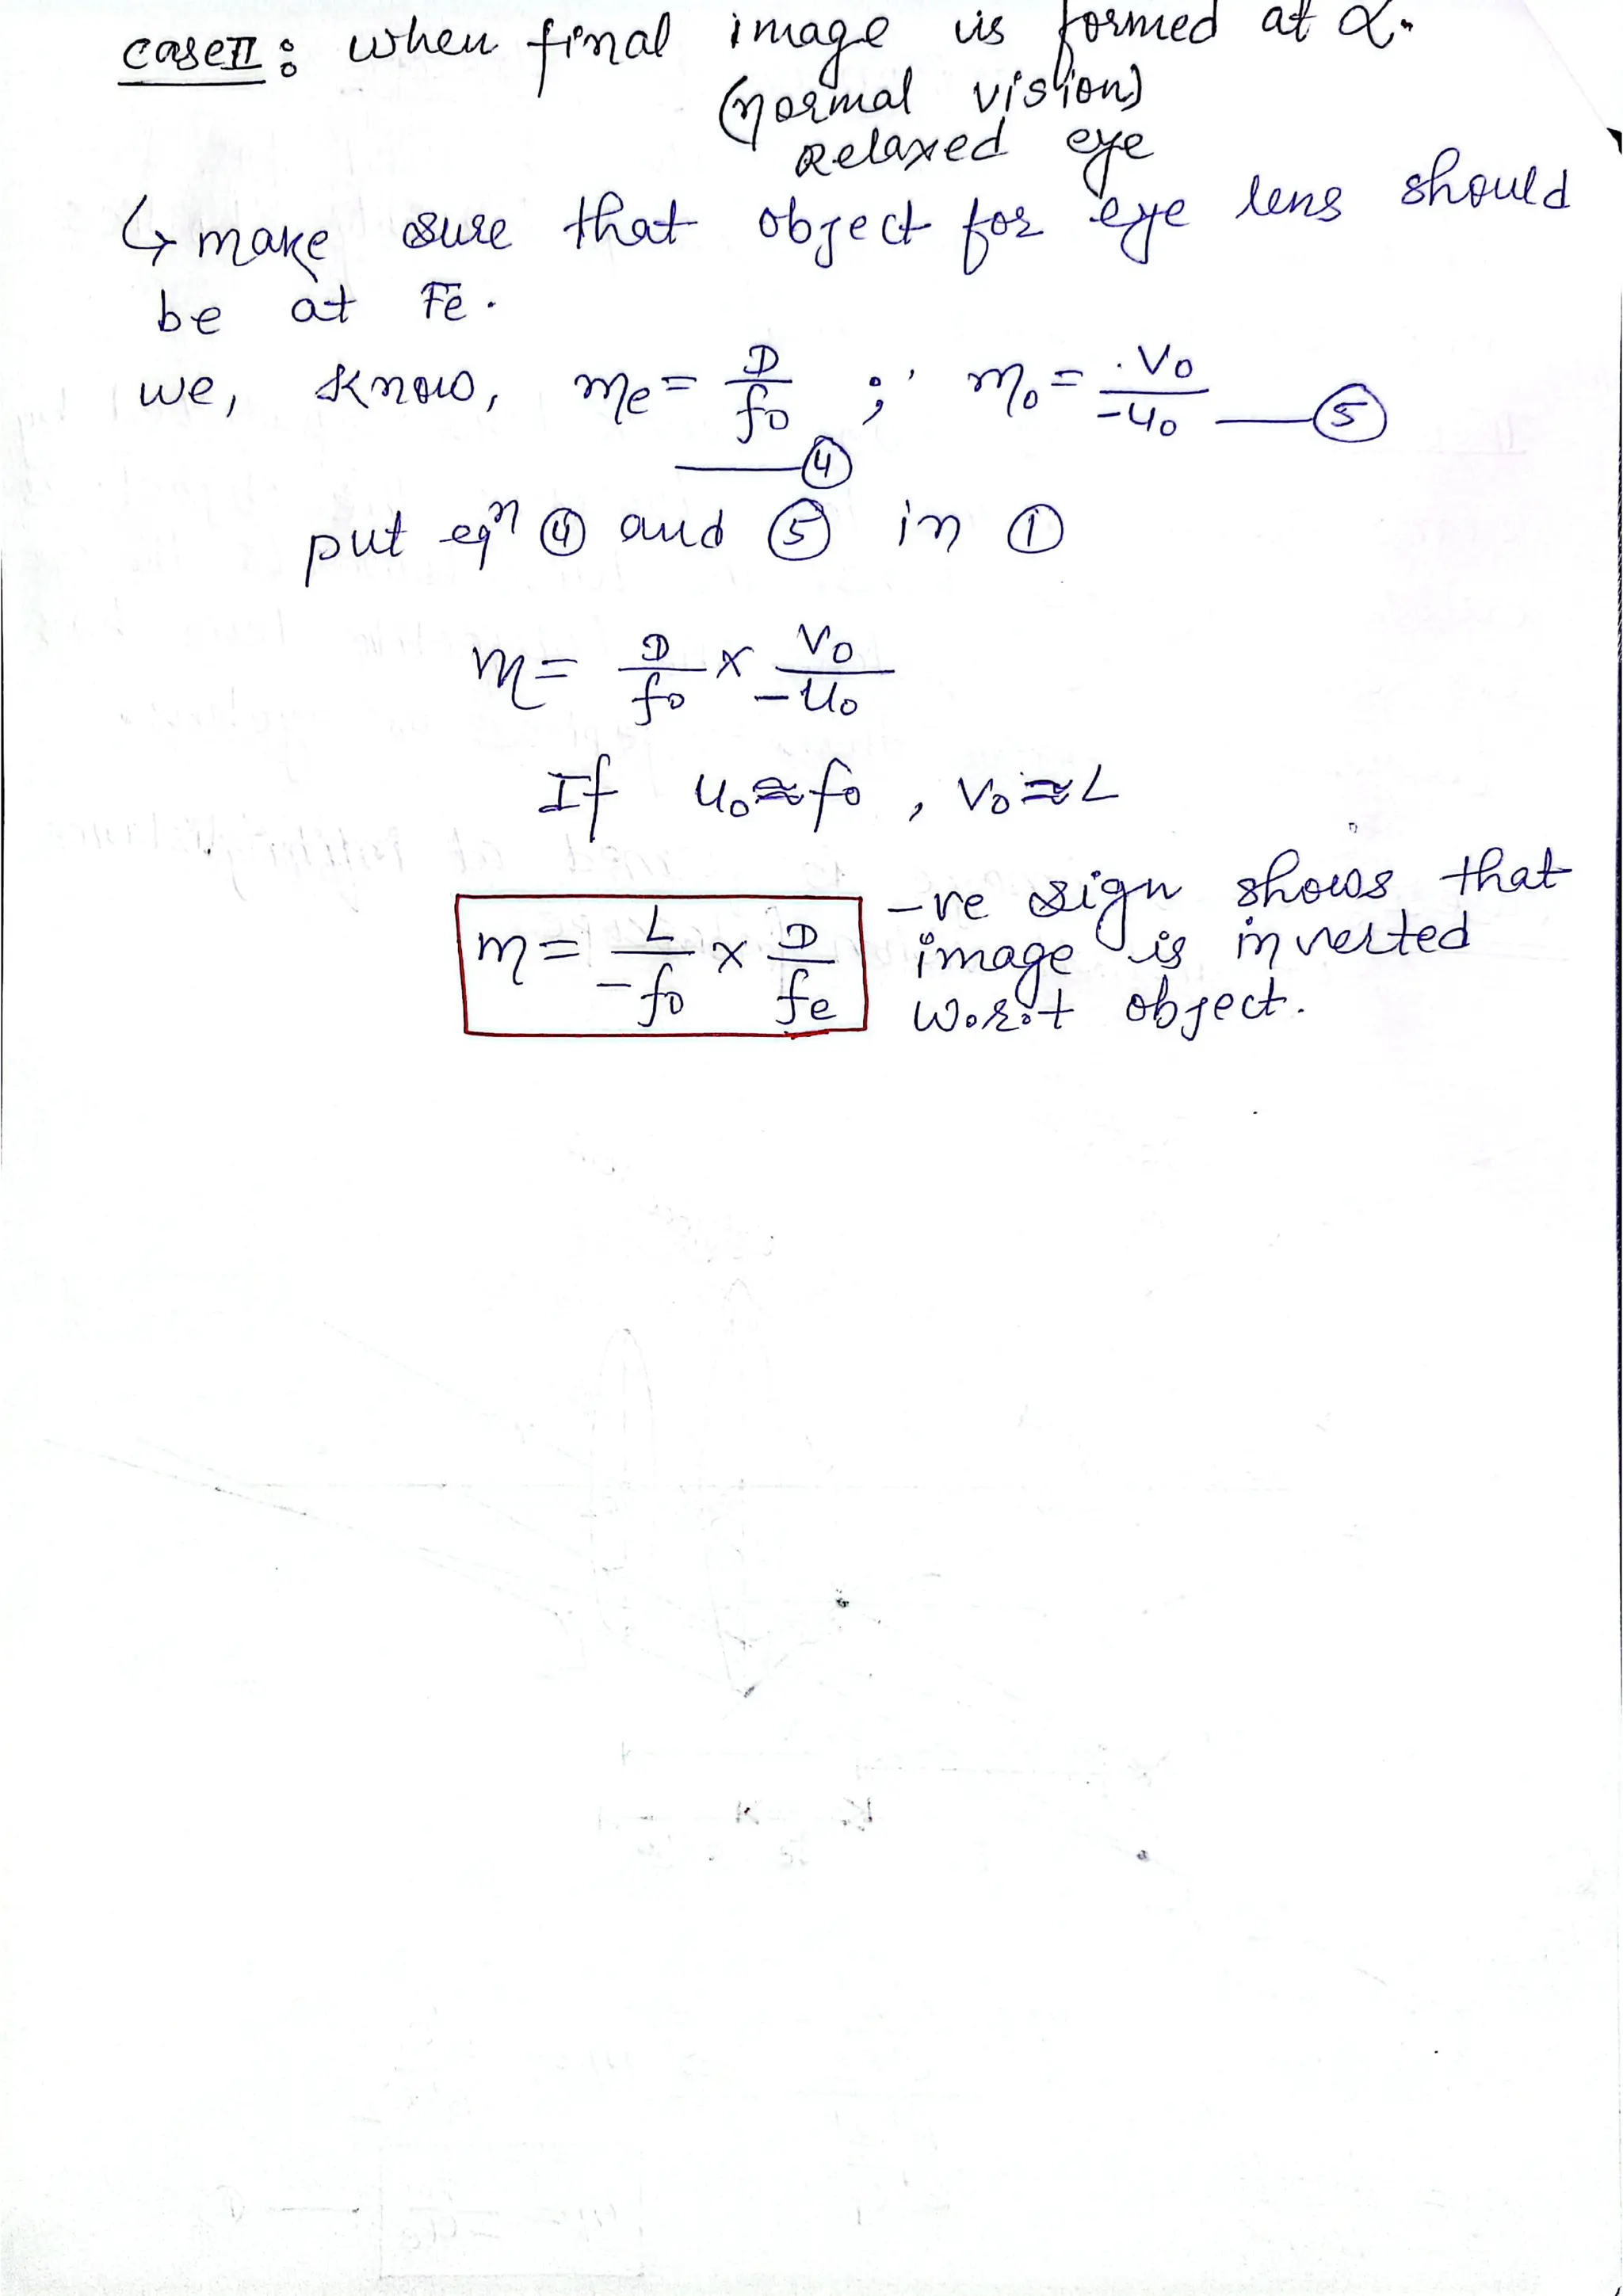 case II : when final image is formed at ∝.
(normal vision)
Relaxed eye
↳ make sure that object for eye lens should
be at Fe.
we, know, me = D/fo ; mo = vo/-uo —— ⑤
—— ④
put eqn ④ and ⑤ in ①
m = D/fo × vo/-uo
If uo ≈ fo , vo ≈ L
m = L/-fo × D/fe
-ve sign shows that
image is inverted
w.r.t object.